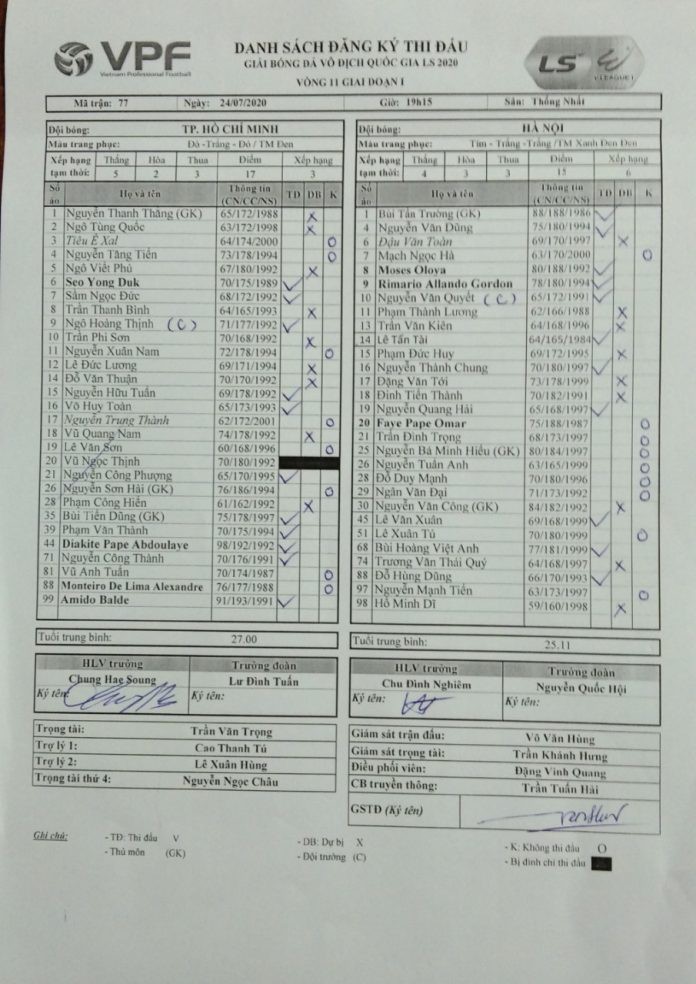 VPF
Vietnam Professional Football
DANH SÁCH ĐĂNG KÝ THI ĐẤU
GIẢI BÓNG ĐÁ VÔ ĐỊCH QUỐC GIA LS 2020
VÒNG 11 GIAI ĐOẠN I
LS
V.LEAGUE 1
Mã trận: 77 Ngày: 24/07/2020 Giờ: 19h15 Sân: Thống Nhất
Đội bóng: TP. HỒ CHÍ MINH
Màu trang phục: Đỏ -Trắng - Đỏ / TM Đen
Xếp hạng tạm thời: Thắng Hòa Thua Điểm Xếp hạng
5 2 3 17 3
Số áo Họ và tên Thông tin (CN/CC/NS) TĐ DB K
1 Nguyễn Thanh Thắng (GK) 65/172/1988 X
2 Ngô Tùng Quốc 63/172/1998 X
3 Tiêu Ê Xal 64/174/2000 O
4 Nguyễn Tăng Tiến 73/178/1994 O
5 Ngô Viết Phú 67/180/1992 X
6 Seo Yong Duk 70/175/1989 V
7 Sầm Ngọc Đức 68/172/1992 V
8 Trần Thanh Bình 64/165/1993 X
9 Ngô Hoàng Thịnh (C) 71/177/1992 V
10 Trần Phi Sơn 70/168/1992 X
11 Nguyễn Xuân Nam 72/178/1994 O
12 Lê Đức Lương 69/171/1994 X
14 Đỗ Văn Thuận 70/170/1992 X
15 Nguyễn Hữu Tuấn 69/178/1992 V
16 Võ Huy Toàn 65/173/1993 V
17 Nguyễn Trung Thành 62/172/2001 O
18 Vũ Quang Nam 74/178/1992 X
19 Lê Văn Sơn 60/168/1996 O
20 Vũ Ngọc Thịnh 70/180/1992
21 Nguyễn Công Phượng 65/170/1995 V
26 Nguyễn Sơn Hải (GK) 76/186/1994 O
28 Phạm Công Hiển 61/162/1992 X
35 Bùi Tiến Dũng (GK) 75/178/1997 V
39 Phạm Văn Thành 70/175/1994 V
44 Diakite Pape Abdoulaye 98/192/1992 V
71 Nguyễn Công Thành 70/176/1991 V
81 Vũ Anh Tuấn 70/174/1987 O
88 Monteiro De Lima Alexandre 76/177/1988 O
99 Amido Balde 91/193/1991 V
Tuổi trung bình: 27.00
HLV trưởng Trưởng đoàn
Chung Hae Soung Lư Đình Tuấn
Ký tên: Ký tên:
Trọng tài: Trần Văn Trọng
Trợ lý 1: Cao Thanh Tú
Trợ lý 2: Lê Xuân Hùng
Trọng tài thứ 4: Nguyễn Ngọc Châu
Đội bóng: HÀ NỘI
Màu trang phục: Tím - Trắng -Trắng /TM Xanh Đen Đen
Xếp hạng tạm thời: Thắng Hòa Thua Điểm Xếp hạng
4 3 3 15 6
Số áo Họ và tên Thông tin (CN/CC/NS) TĐ DB K
1 Bùi Tấn Trường (GK) 88/188/1986 V
4 Nguyễn Văn Dũng 75/180/1994 V
6 Đậu Văn Toàn 69/170/1997 X
7 Mạch Ngọc Hà 63/170/2000 O
8 Moses Oloya 80/188/1992 V
9 Rimario Allando Gordon 78/180/1994 V
10 Nguyễn Văn Quyết (C) 65/172/1991 V
11 Phạm Thành Lương 62/166/1988 X
13 Trần Văn Kiên 64/168/1996 X
14 Lê Tấn Tài 64/165/1984 V
15 Phạm Đức Huy 69/172/1995 X
16 Nguyễn Thành Chung 70/180/1997 V
17 Đặng Văn Tới 73/178/1999 X
18 Đinh Tiến Thành 70/182/1991 X
19 Nguyễn Quang Hải 65/168/1997 V
20 Faye Pape Omar 75/188/1987 O
21 Trần Đình Trọng 68/173/1997 O
25 Nguyễn Bá Minh Hiếu (GK) 80/184/1997 O
26 Nguyễn Tuấn Anh 63/165/1999 O
28 Đỗ Duy Mạnh 70/180/1996 O
29 Ngân Văn Đại 71/173/1992 O
30 Nguyễn Văn Công (GK) 84/182/1992 X
45 Lê Văn Xuân 69/168/1999 V
51 Lê Xuân Tú 70/180/1999 O
68 Bùi Hoàng Việt Anh 77/181/1999 V
74 Trương Văn Thái Quý 64/168/1997 X
88 Đỗ Hùng Dũng 66/170/1993 V
97 Nguyễn Mạnh Tiến 63/173/1997 O
98 Hồ Minh Dĩ 59/160/1998 X
Tuổi trung bình: 25.11
HLV trưởng Trưởng đoàn
Chu Đình Nghiêm Nguyễn Quốc Hội
Ký tên: Ký tên:
Giám sát trận đấu: Võ Văn Hùng
Giám sát trọng tài: Trần Khánh Hưng
Điều phối viên: Đặng Vinh Quang
CB truyền thông: Trần Tuấn Hải
GSTĐ (Ký tên)
Ghi chú: - TĐ: Thi đấu V - DB: Dự bị X - K: Không thi đấu O
- Thủ môn (GK) - Đội trưởng (C) - Bị đình chỉ thi đấu